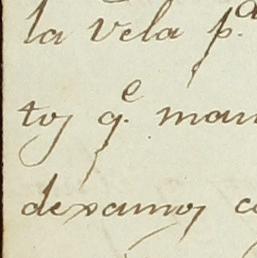 la vela p.ᵃ
tos q.ᵉ man
dexamos c